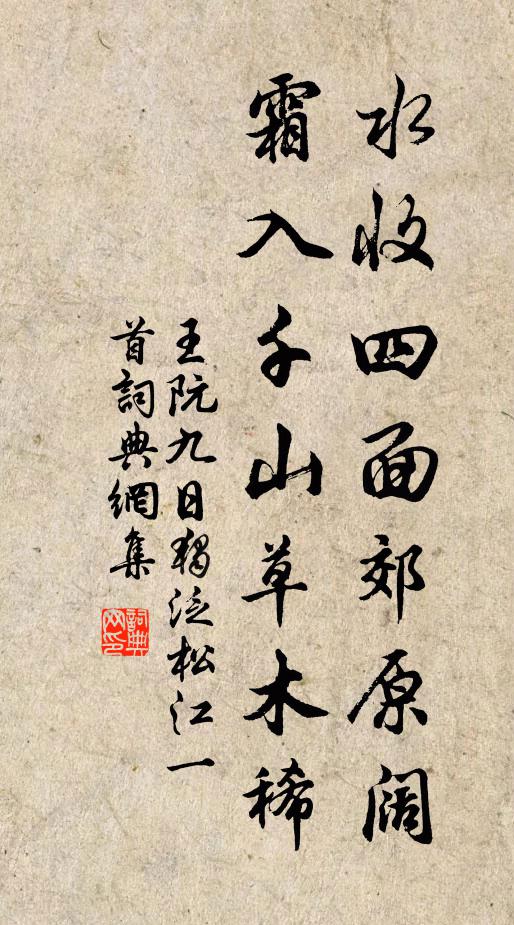 水收四面郊原阔
霜入千山草木稀
王阮九日獨泛松江一
首詞典網集
詞典
网印